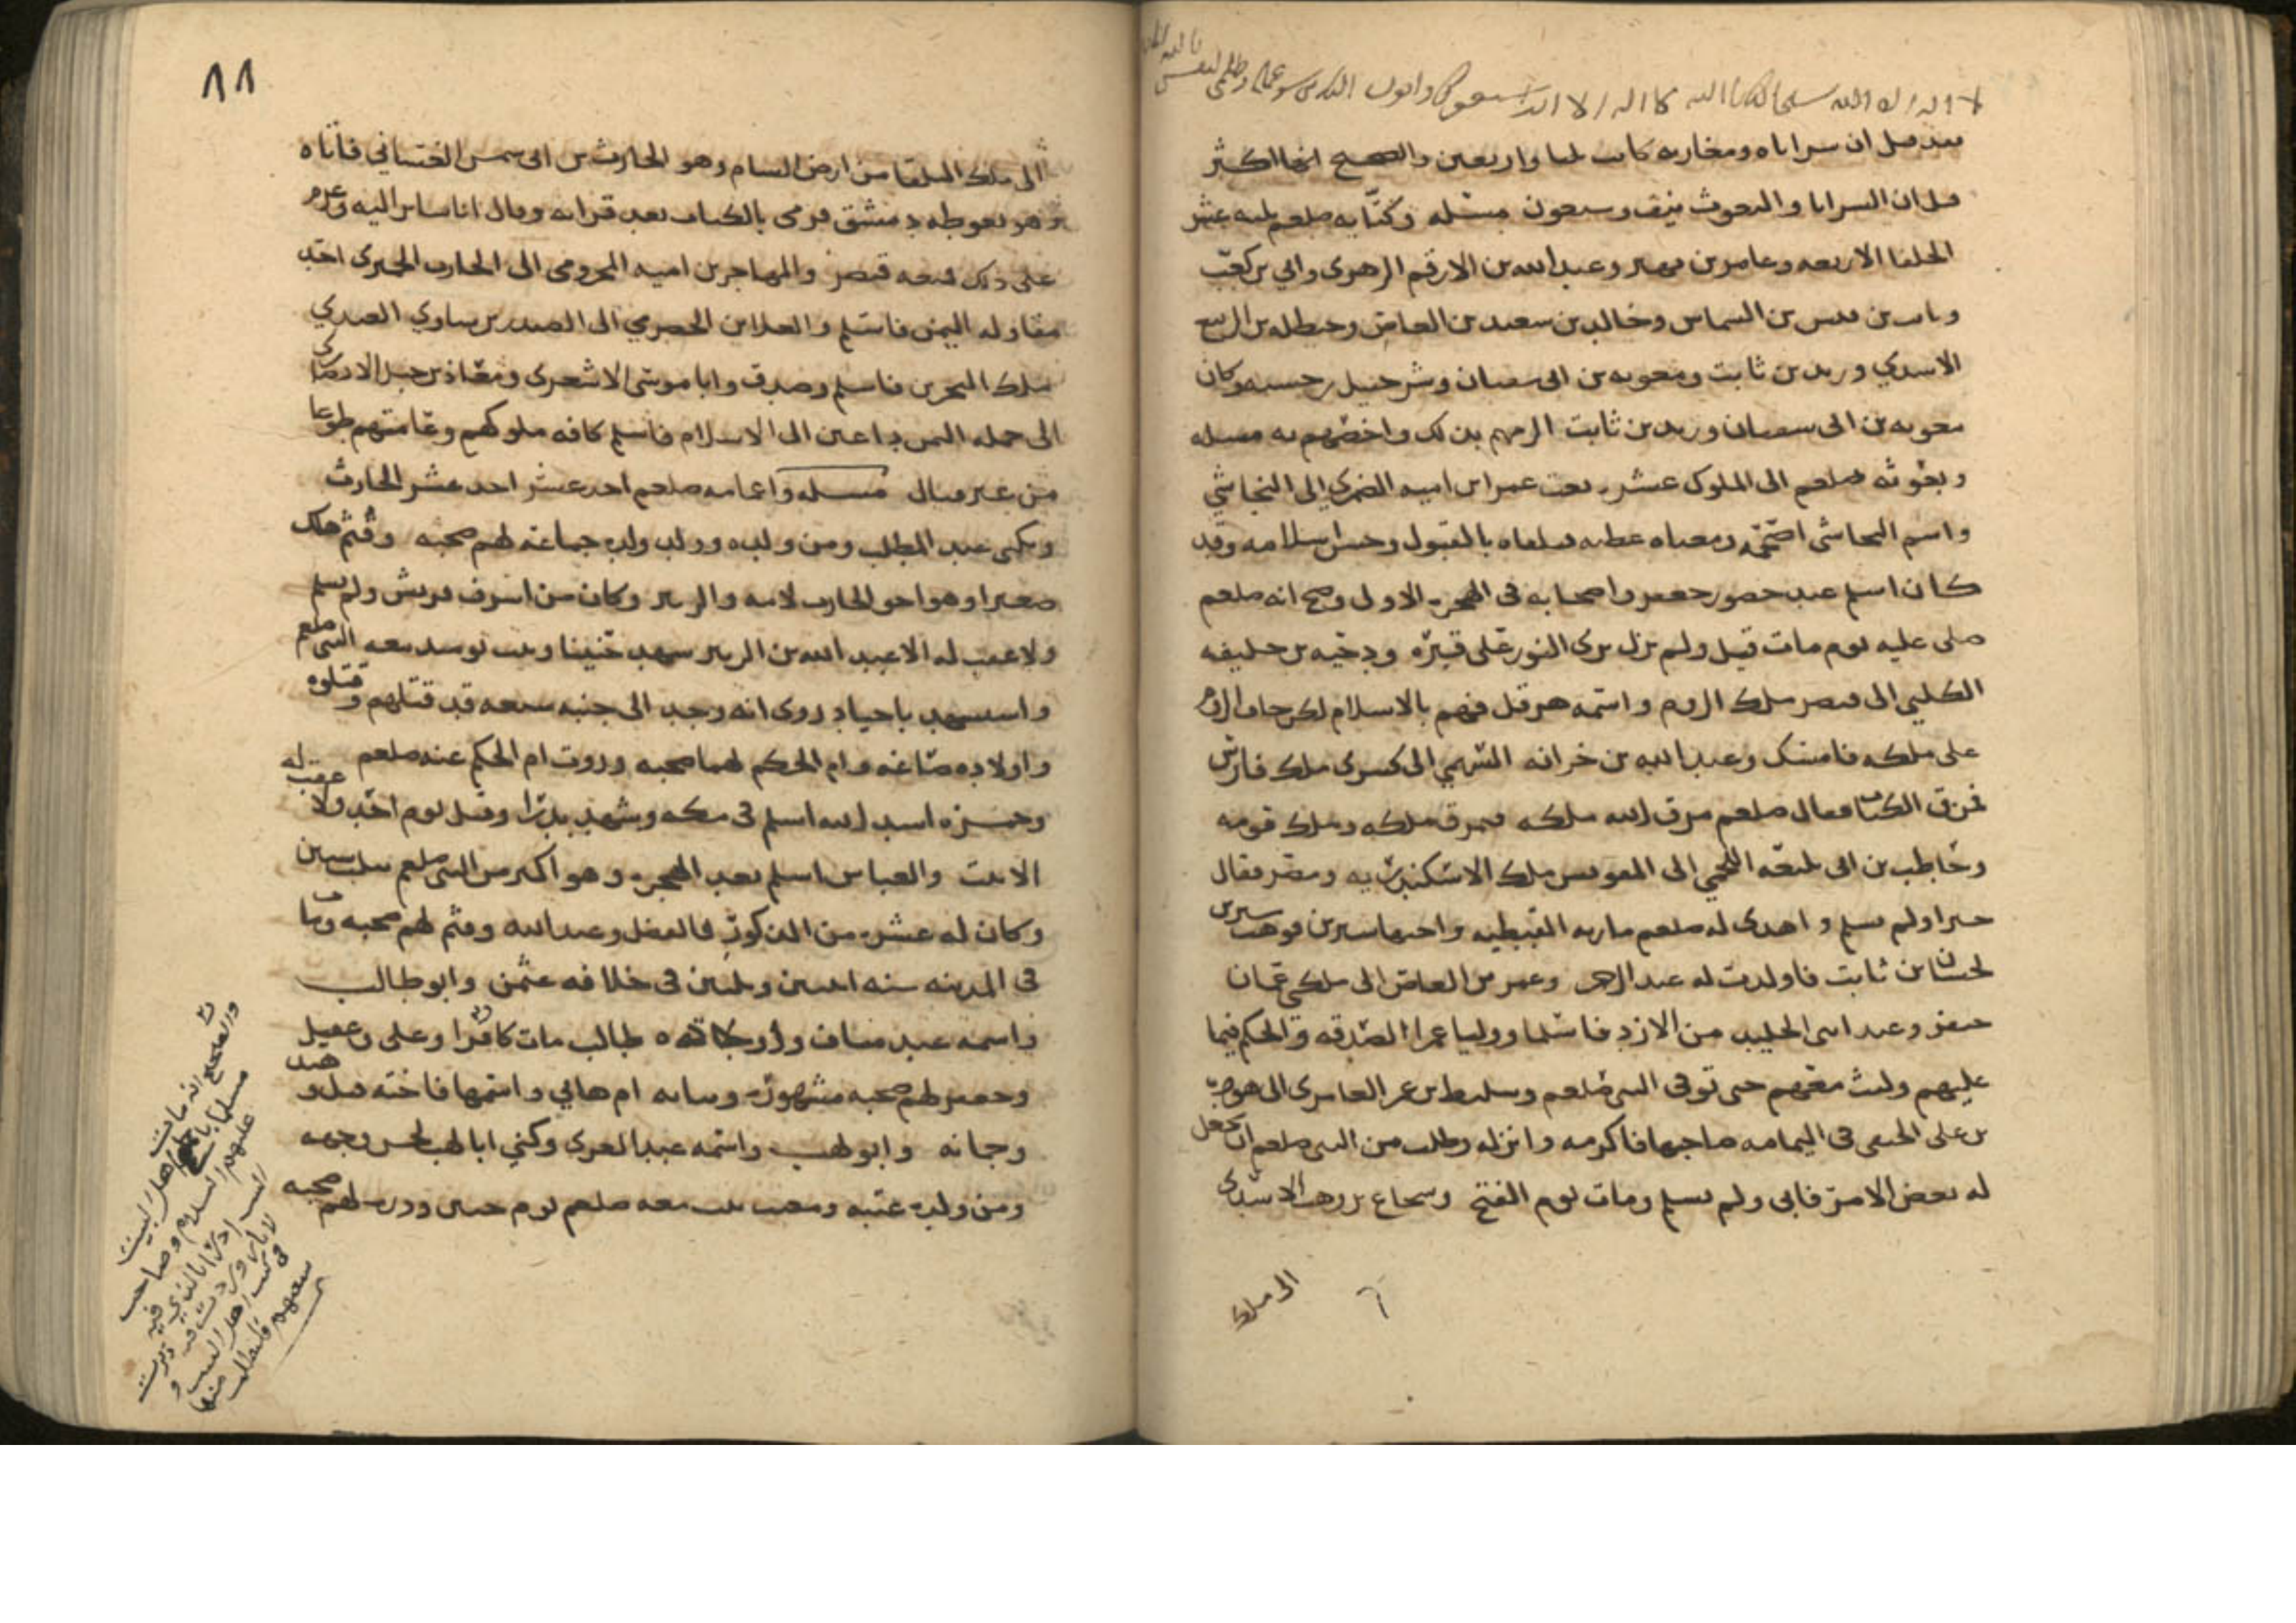 لا اله الا الله لا اله الا الله
بعد قيل ان سراياه ومغازيه كانت ثلثا واربعين والصحيح انها اكثر
قيل ان السرايا والبعوث نيف وسبعون مسئله وكتّابه صلعم ثلثه عشر
الخلفا الاربعه وعامر بن فهيره وعبد الله بن الارقم الزهري وابي بن كعب
وثابت بن قيس بن الشماس وخالد بن سعيد بن العاص وحنظله بن الربيع
الاسدي وزيد بن ثابت ومعويه بن ابي سفيان وشرحبيل بن حسنه وكان
معويه بن ابي سفيان وزيد بن ثابت الزمهم بذلك واخصهم به مسئله
وبعوثه صلعم الى الملوك عشره بعث عمرا بن اميه الضمري الى النجاشي
واسم النجاشي اصحمه ومعناه عطيه فتلقاه بالقبول وحسن اسلامه وقد
كان اسلم عند حضور جعفر واصحابه في الهجره الاولى وصح انه صلعم
صلى عليه يوم مات قيل ولم يزل يرى النور على قبره ودحيه بن خليفه
الكلبي الى قيصر ملك الروم واسمه هرقل فهم بالاسلام لكن خاف الروم
على ملكه فامسك وعبد الله بن حذافه السهمي الى كسرى ملك فارس
فمزق الكتاب فقال صلعم مزق الله ملكه فمزق ملكه وملك قومه
وحاطب بن ابي بلتعه اللخمي الى المقوقس ملك الاسكندريه ومصر فقال
خيرا ولم يسلم واهدى له صلعم ماريه القبطيه واختها سيرين فوهب سيرين
لحسان بن ثابت فاولدت له عبد الرحمن وعمر بن العاص الى ملكي عمان
جيفر وعبد ابني الجليد من الازد فاسلما ووليا عمرا الصدقه والحكم فيما
عليهم ولبث معهم حتى توفي النبي صلعم وسليط بن عمر العامري الى هوذه
بن علي الحنفي في اليمامه صاحبها فاكرمه وانزله وطلب من النبي صلعم ان يجعل
له بعض الامر فابى ولم يسلم ومات يوم الفتح وشجاع بن وهب الاسدي
الى ملك
١١
الى ملك البلقا من ارض الشام وهو الحارث بن ابي شمر الغساني فاتاه
وهو بغوطه دمشق فرمى بالكتاب بعد قرائه وقال انا ساير اليه وعزم
على ذلك فمنعه قيصر والمهاجر بن اميه المخزومي الى الحارث الحميري احد
مقاوله اليمن فاسلم والعلا بن الحضرمي الى المنذر بن ساوي العبدي
ملك البحرين فاسلم وصدق وابا موسى الاشعري ومعاذ بن جبل الانصاري
الى جمله اليمن داعين الى الاسلام فاسلم كافه ملوكهم وعامتهم طوعا
من غير قتال مسئله واعمامه صلعم احد عشر احد عشر الحارث
ويكنى عبد المطلب ومن ولده وولد ولده جماعه لهم صحبه وقثم هلك
صغيرا وهو اخو الحارث لامه والزبير وكان من اشرف قريش ولم يسلم
ولا عقب له الا عبد الله بن الزبير شهد حنينا وثبت يومئذ معه النبي صلعم
واستشهد باجنادين روي انه وجد الى جنبه سبعه قد قتلهم وقتلوه
واولاده ضباعه وام الحكم لهما صحبه وروت ام الحكم عنه صلعم
وحمزه اسد الله اسلم في مكه وشهد بدرا وقتل يوم احد ولا عقب له
الا بنت والعباس اسلم بعد الهجره وهو اكبر من النبي صلعم بثلث سنين
وكان له عشره من الذكور فالفضل وعبد الله وقثم لهم صحبه ومات
في المدينه سنه اثنين وثلثين في خلافه عثمن وابو طالب
واسمه عبد مناف واولاده طالب مات كافرا وعلى وعقيل
وجعفر لهم صحبه مشهوره وبناته ام هاني واسمها فاخته قيل وهند
وجمانه وابو لهب واسمه عبد العزى وكني ابا لهب لحسن وجهه
ومن ولده عتبه ومعتب ثبت معه صلعم يوم حنين ودره لهم صحبه
والصحيح انه مات
مسلما باجماع اهل البيت
عليهم السلام وصاحب